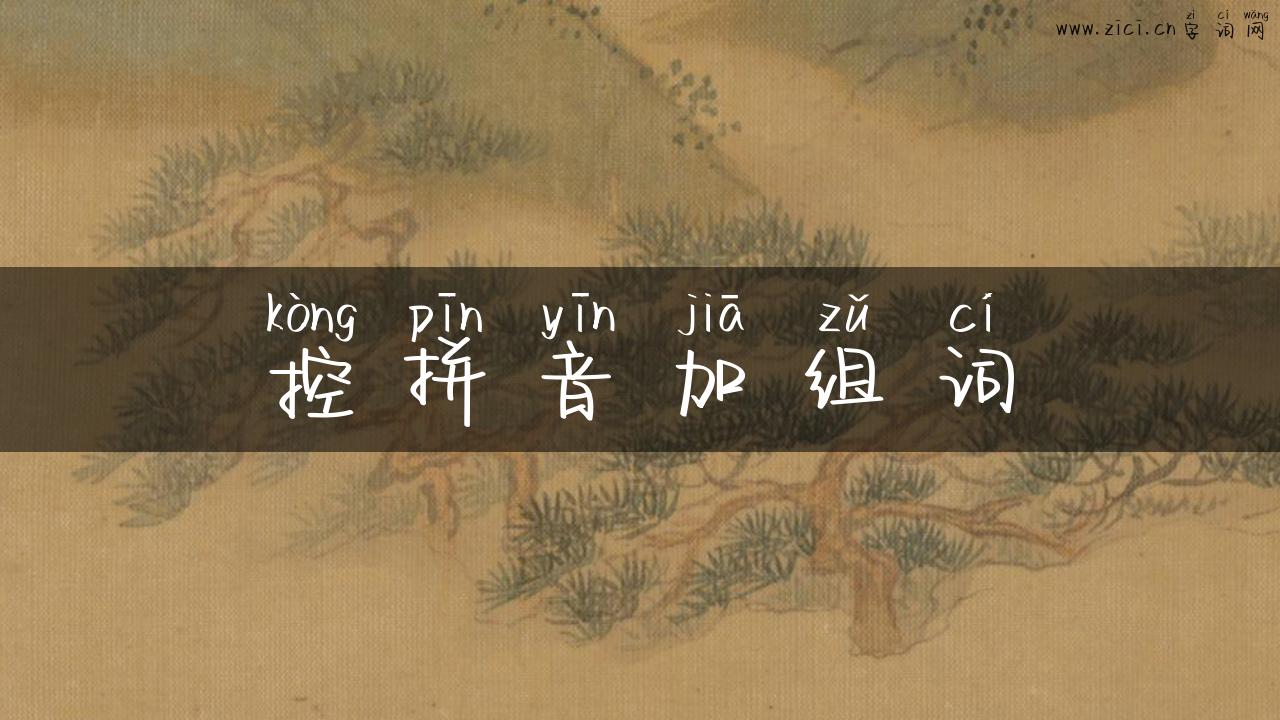 zì cí wǎng
www.zici.cn 字词网
kòng pīn yīn jiā zǔ cí
控拼音加组词